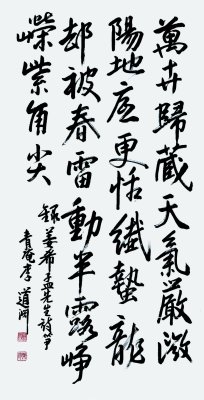 萬卉歸藏天氣嚴微
陽地底更恬纖蟄龍
却被春雷動半露崢
嶸紫角尖
錄姜希孟先生詩笋
青庵李道